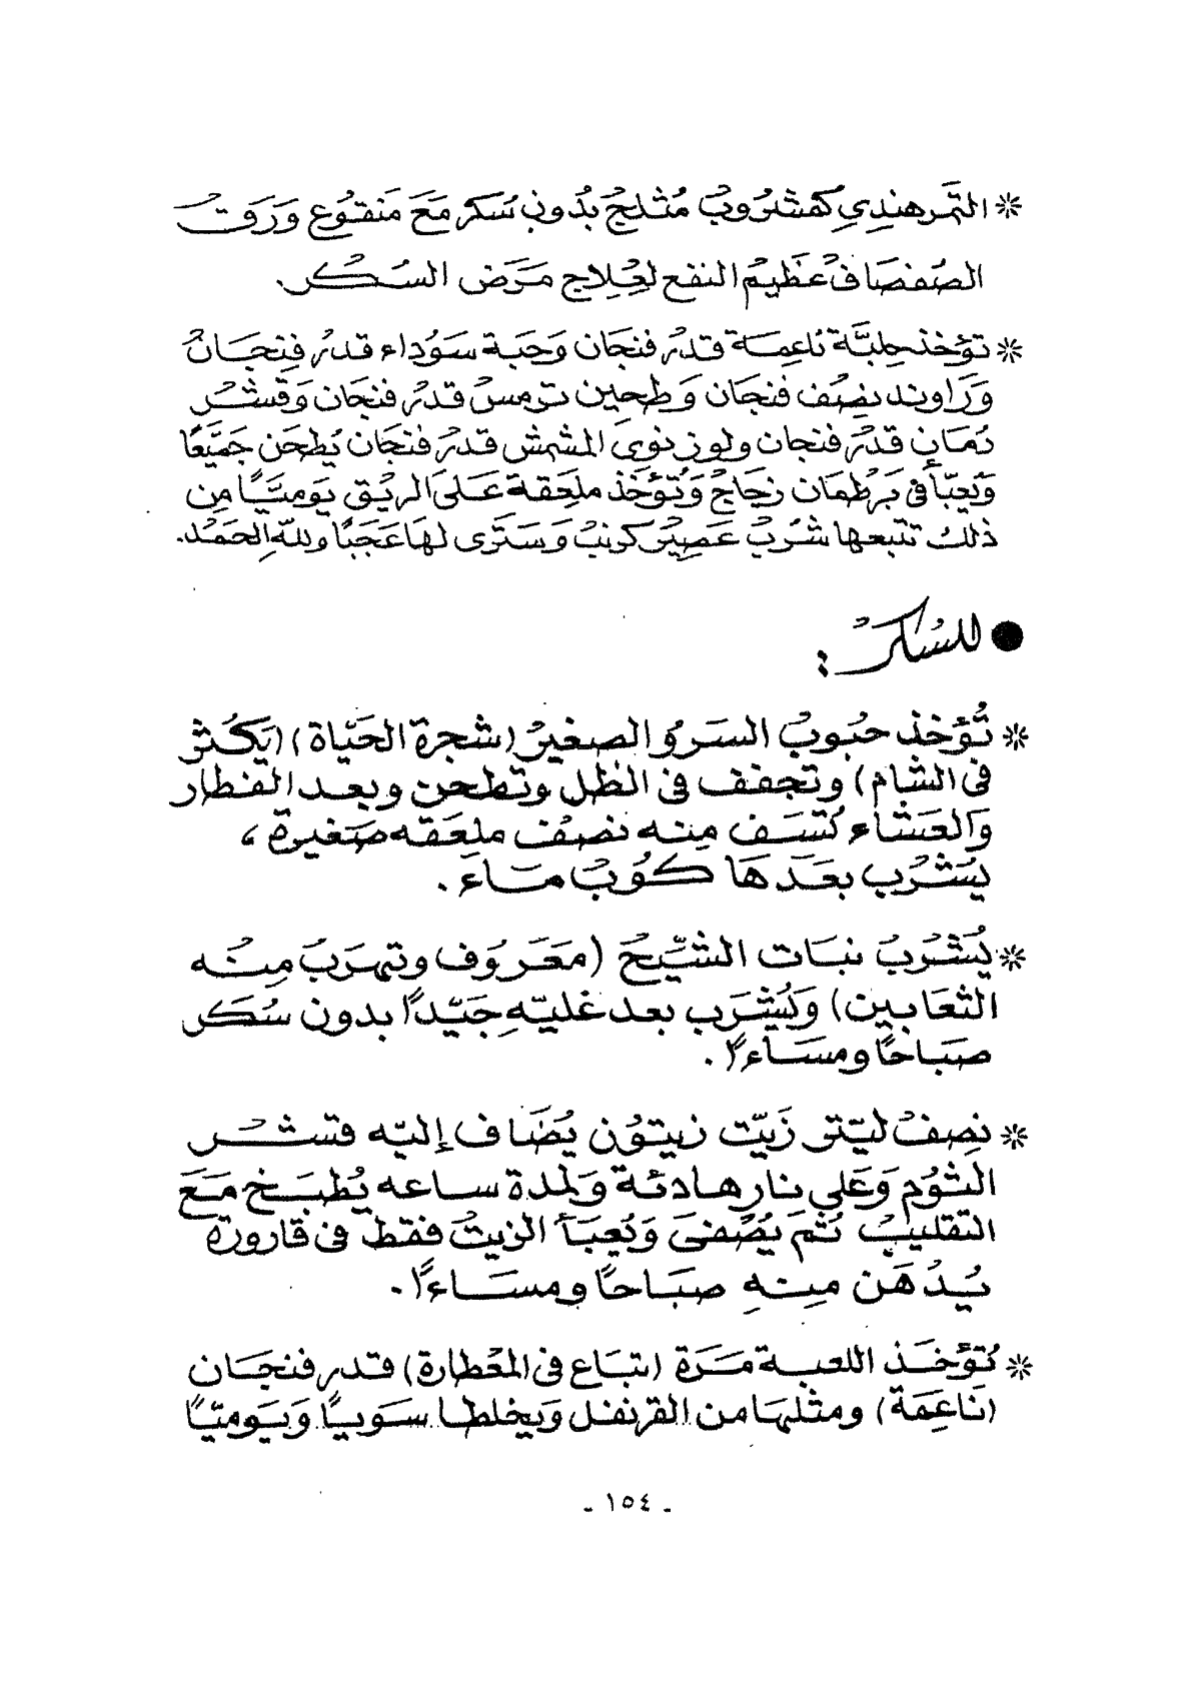 * التمر هندي كمشروب مثلج بدون سكر مع منقوع ورق
الصفصاف عظيم النفع لعلاج مرض السكر.
* تؤخذ حلبة ناعمة قدر فنجان وحبة سوداء قدر فنجان
وراوند نصف فنجان وطحين ترمس قدر فنجان وقشر
رمان قدر فنجان ولوز نوى المشمش قدر فنجان يطحن جميعًا
ويعبأ في برطمان زجاج وتؤخذ ملعقة على الريق يوميًا من
ذلك تتبعها شرب عصير كرنب وسترى لها عجبًا ولله الحمد.
● للسكر :
* تُؤخذ حبوب السرو الصغير (شجرة الحياة) (يكثر
في الشام) وتجفف في الظل وتطحن وبعد الفطار
والعشاء تسف منه نصف ملعقه صغيرة ،
يشرب بعدها كوب ماء .
* يُشرب نبات الشيح (معروف وتهرب منه
الثعابين) ويشرب بعد غليه جيدًا بدون سكر
صباحًا ومساءًا .
* نصف ليتر زيت زيتون يضاف إليه قشر
الثوم وعلى نار هادئة ولمدة ساعه يطبخ مع
التقليب ثم يصفى ويعبأ الزيت فقط في قارورة
يدهن منه صباحًا ومساءًا .
* تُؤخذ اللعبة مرة (تباع في العطارة) قدر فنجان
(ناعمة) ومثلها من القرنفل ويخلطا سويًا ويوميًا
- ١٥٤ -